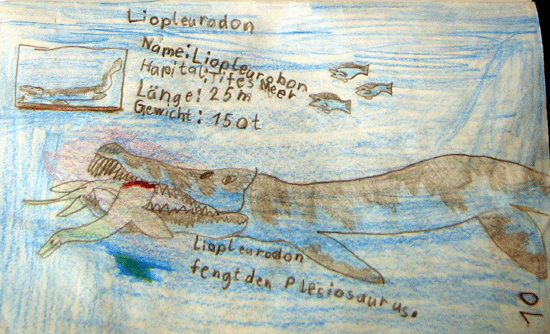 Liopleurodon
Name: Liopleurobon
Hapitalitifes Meer
Länge: 25m
Gewicht: 150t
Liopleurodon
fengt den Plesiosaurus.
10